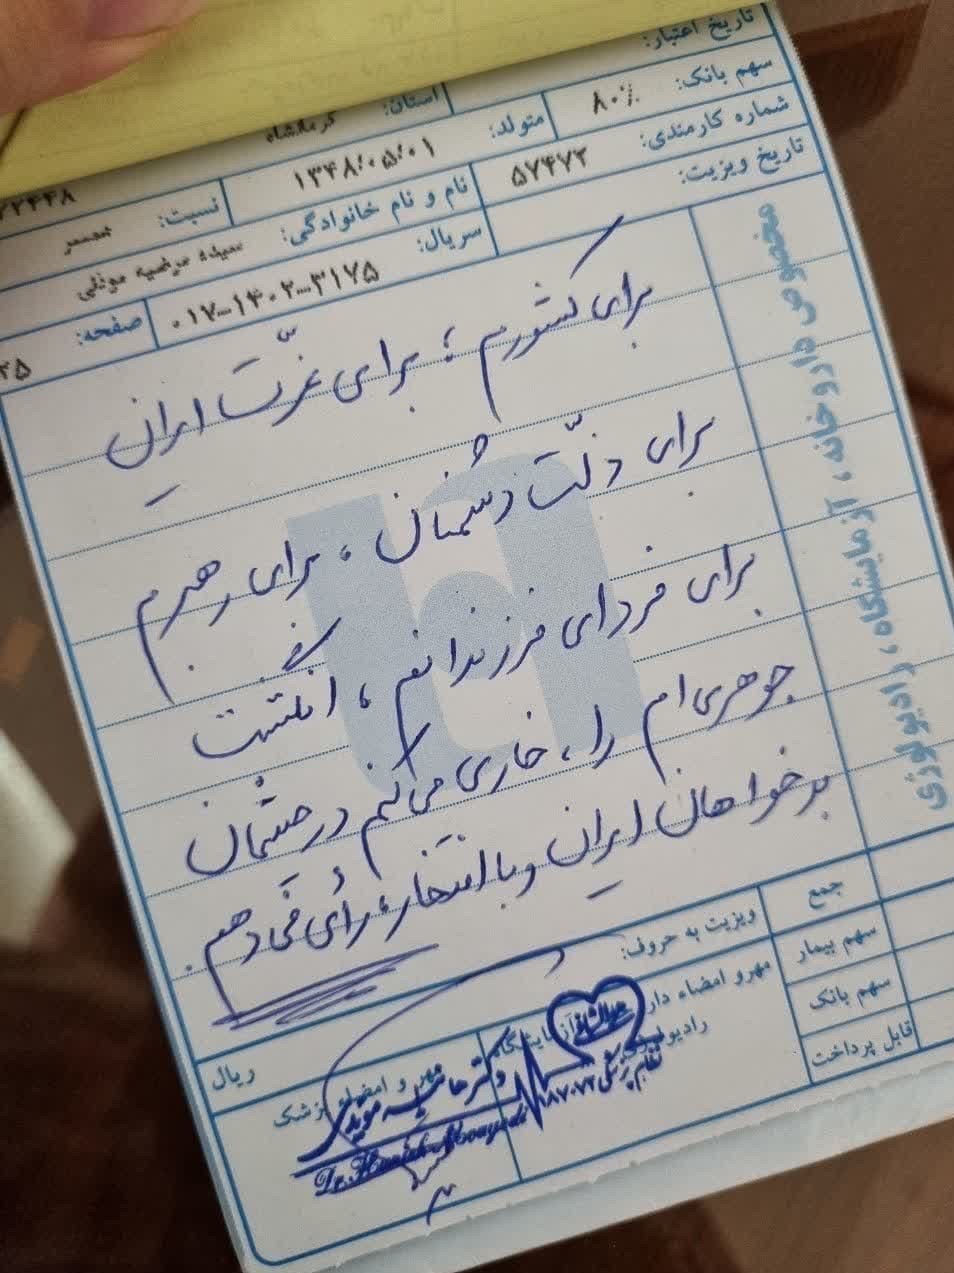 تاریخ اعتبار:
سهم بانک: ۸۰٪ استان: کرمانشاه
شماره کارمندی: ۵۷۴۷۲ متولد: ۱۳۴۸/۰۵/۰۱
تاریخ ویزیت: نام و نام خانوادگی: سیده مرضیه نسبت: همسر
سریال: ۰۱۷-۱۴۰۲-۳۱۷۵ صفحه: ۲۵
مخصوص داروخانه، آزمایشگاه، رادیولوژی
برای کشورم ؛ برای عزّت ایران
برای ذلّت دشمنان ، برای رهبرم
برای فردای فرزندانم ، انگشت
جوهری ام را ، خاری می کنم در چشمان
بدخواهان ایران و با افتخار، رأی می دهم .
جمع
سهم بیمار
سهم بانک
قابل پرداخت
ویزیت به حروف:
ریال
مهر و امضاء
رادیولوژی
مهر و امضاء پزشک
دکتر
نظام پزشکی ۱۸۷۰۷۲